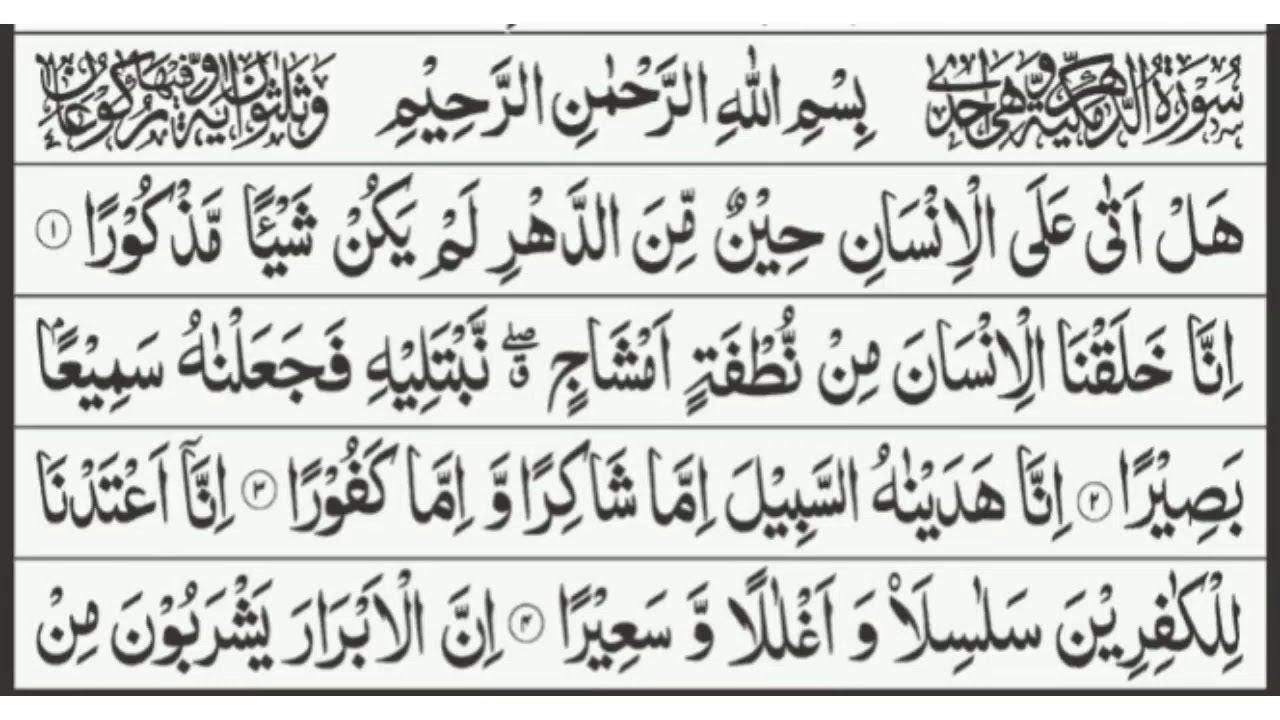 سُوْرَةُ الدَّهْرِ مَكِّيَّةٌ وَّهِیَ اِحْدٰی بِسْمِ اللّٰهِ الرَّحْمٰنِ الرَّحِيْمِ وَثَلٰثُوْنَ اٰيَةً وَّفِيْهَا رُكُوْعَانِ
هَلْ اَتٰى عَلَى الْاِنْسَانِ حِيْنٌ مِّنَ الدَّهْرِ لَمْ يَكُنْ شَيْـًٔا مَّذْكُوْرًا ۝۱
اِنَّا خَلَقْنَا الْاِنْسَانَ مِنْ نُّطْفَةٍ اَمْشَاجٍ ۖۗ نَّبْتَلِيْهِ فَجَعَلْنٰهُ سَمِيْعًاۢ
بَصِيْرًا ۝۲ اِنَّا هَدَيْنٰهُ السَّبِيْلَ اِمَّا شَاكِرًا وَّ اِمَّا كَفُوْرًا ۝۳ اِنَّاۤ اَعْتَدْنَا
لِلْكٰفِرِيْنَ سَلٰسِلَا۠ وَ اَغْلٰلًا وَّ سَعِيْرًا ۝۴ اِنَّ الْاَبْرَارَ يَشْرَبُوْنَ مِنْ